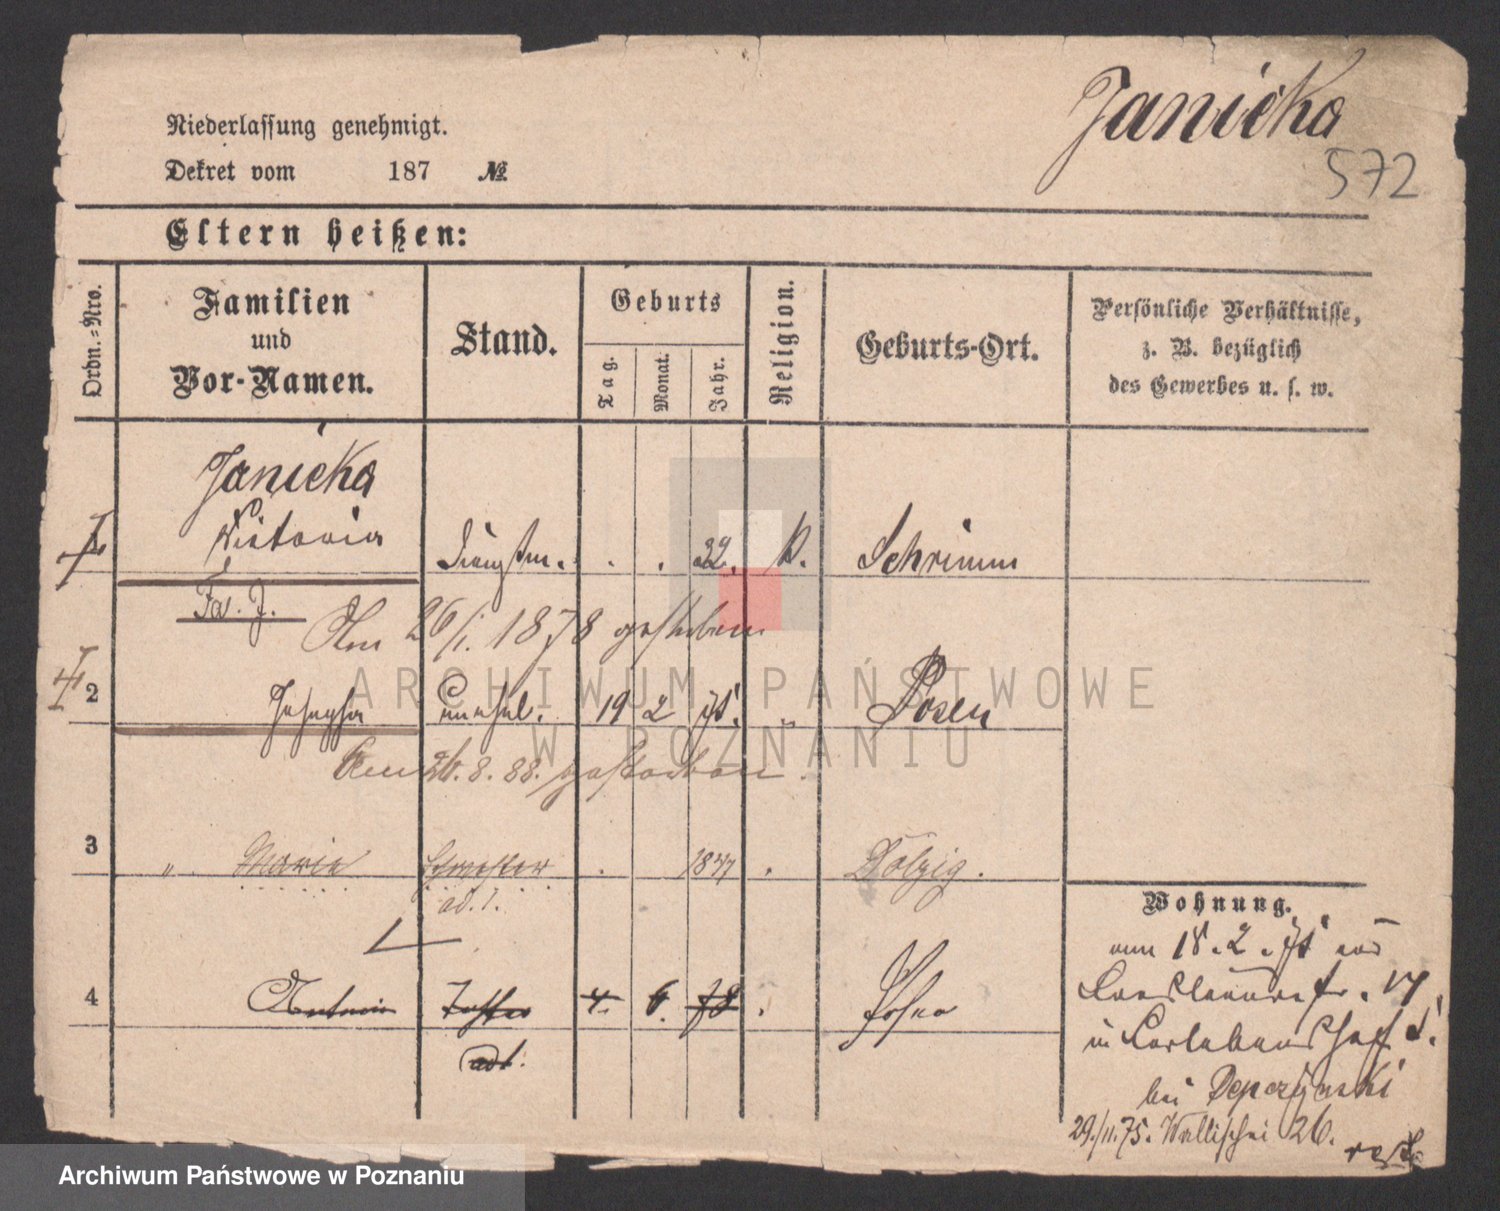 Janicka
572
Niederlassung genehmigt.
Dekret vom 187 №
Eltern heißen:
Ordn.=Nro.
Familien
und
Vor-Namen.
Stand.
Geburts
Tag.
Monat.
Jahr.
Religion.
Geburts-Ort.
Persönliche Verhältnisse,
z. B. bezüglich
des Gewerbes u. s. w.
Janicka
Victoria . . 32. K. Schrimm
Fa. J.
Am 26/1. 1878 gestorben
2 Josepha 19 2 " Posen
Am 26.8.88. gestorben.
3 " Marie Schwester . 1847 . Dolzig.
ad. 1.
4 Antonie Tochter 4. 6. 78 . Posen
ad 1.
Wohnung.
vom 18. 2. 75 an
17
in
bei Depczynski
29./11.75. Wallischei 26.
ARCHIWUM PAŃSTWOWE
W POZNANIU
Archiwum Państwowe w Poznaniu